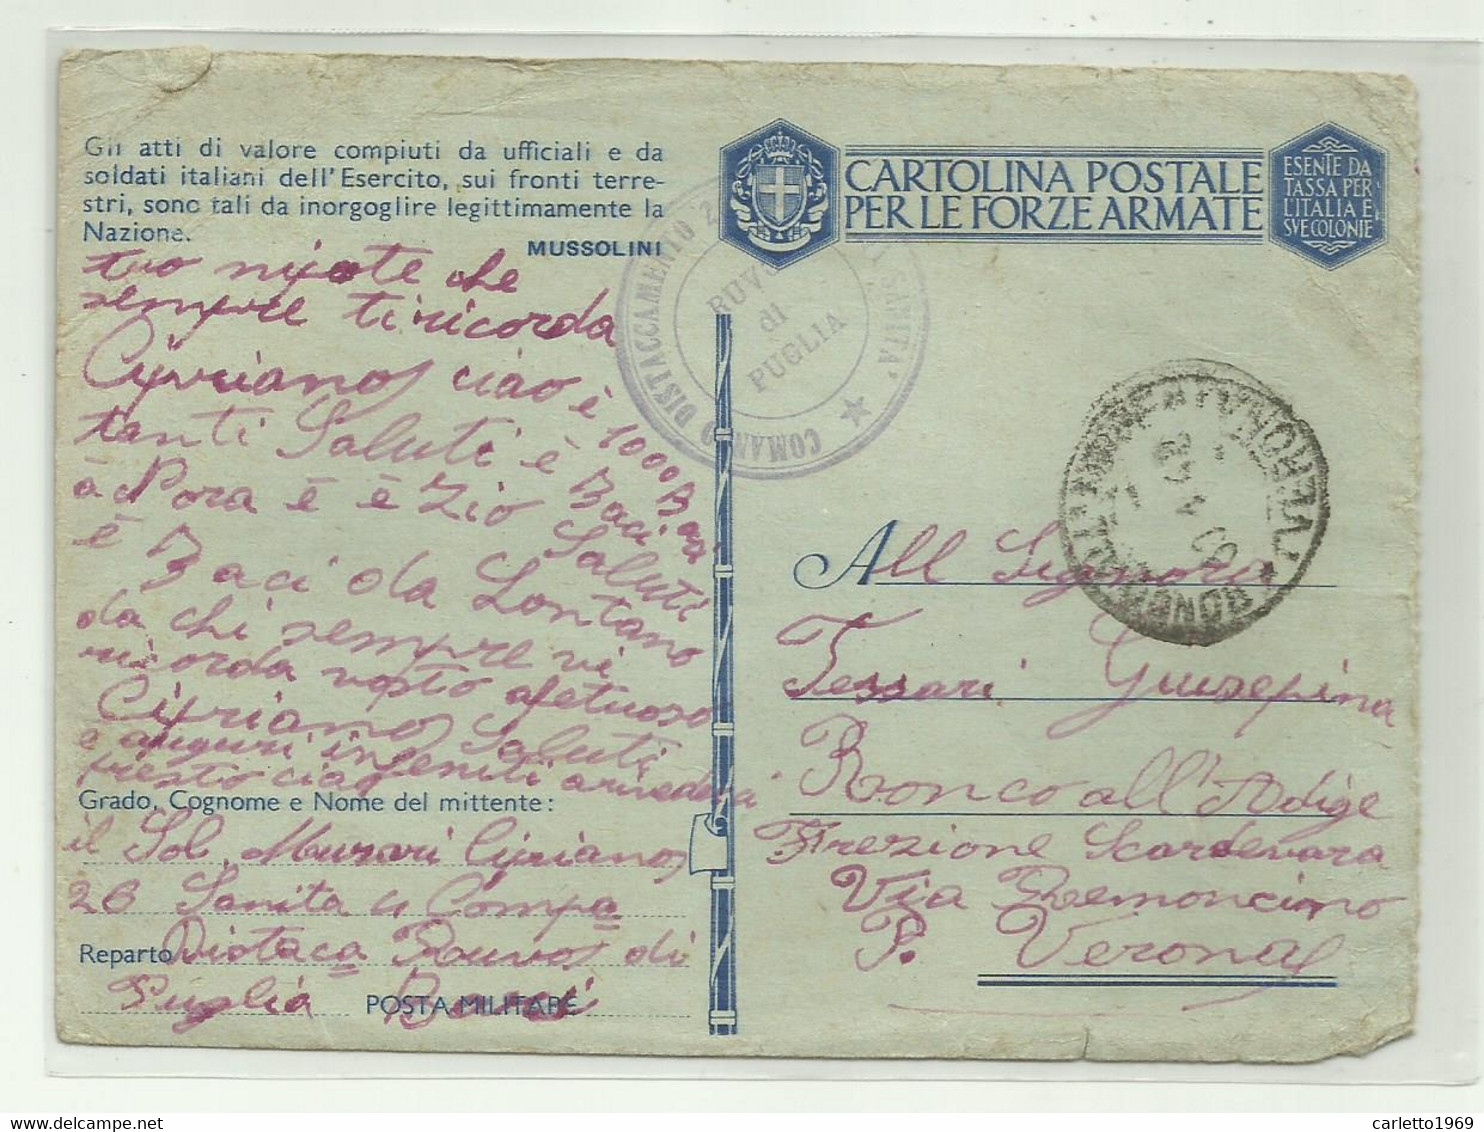 Gli atti di valore compiuti da ufficiali e da
soldati italiani dell'Esercito, sui fronti terre-
stri, sono tali da inorgoglire legittimamente la
Nazione.
MUSSOLINI
tuo nipote che
sempre ti ricorda
Ciprianos ciao è 1000 Baci
tanti Saluti è Baci
à Nora è è Zio Saluti
è Baci da Lontano
da chi sempre vi
ricorda vosto afetuoso
Ciprianos Saluti
e auguri infeniti arivederci
presto ciao
Grado, Cognome e Nome del mittente:
il Sol. Murari Ciprianos
26 Sanita 4 Compa
Reparto Distaca Ruvos di
Puglia POSTA MILITARE Bari
CARTOLINA POSTALE
PER LE FORZE ARMATE
ESENTE DA
TASSA PER
L'ITALIA E
SVE COLONIE
COMANDO DISTACCAMENTO 2 SANITA'
RUVO
di
PUGLIA
VERONA
All Signora
Tessari Giusepina
Ronco all'Adige
Frezione Scardevara
Via Remoncino
P. Verona
carletto1969